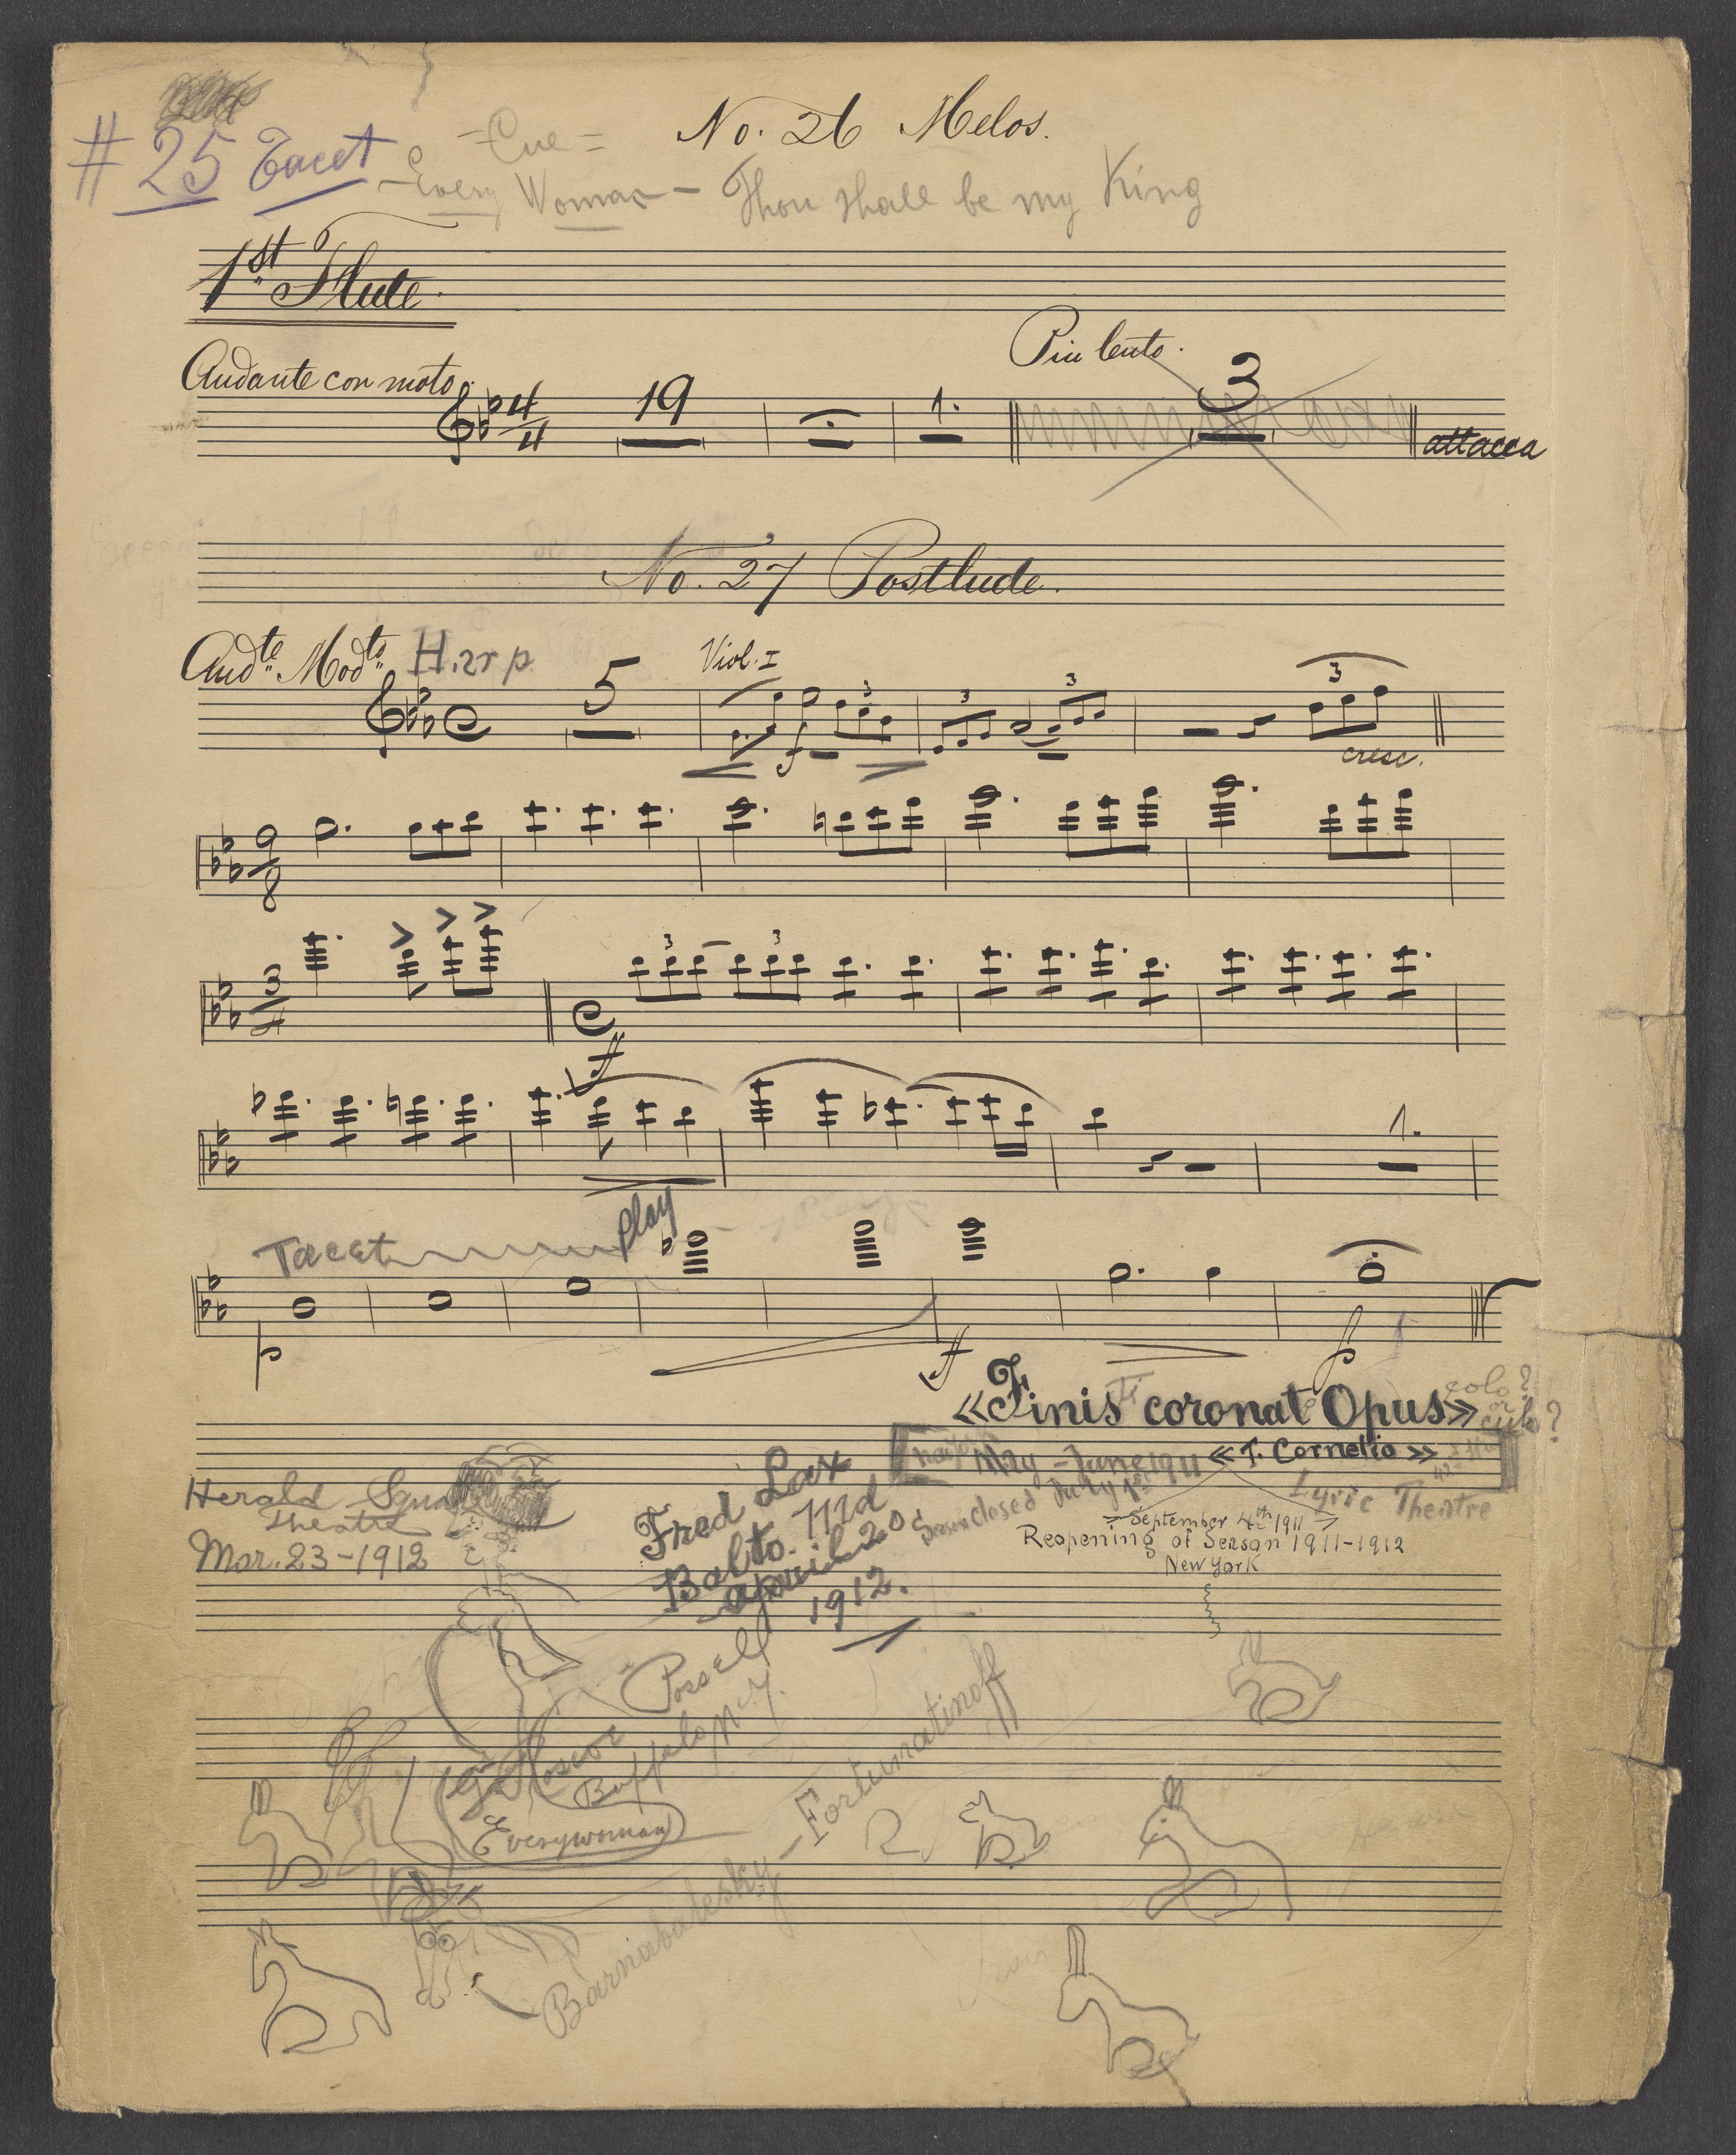 No. 26 Melos.
# 25 Tacet
- Cue =
- Every Woman - Thou shall be my King
1st Flute.
Piu lento.
Andante con moto.
4/4 19 1. 3 attacca
No. 27 Postlude.
Andte Modto Harp
5 Viol. I
3 3 3 3
f
cresc.
9/8
3/4 3 3
ff
1.
Tacet play
p
ff p
«Finis coronat Opus»
colo?
or
culo?
May - June 1911 «T. Cornelio»
Season closed July 1st
Lyric Theatre
September 4th 1911
Reopening of Season 1911-1912
New York
Herald Square
Theatre
Mar. 23 - 1912
Fred Lax
Balto. Md
April 20
1912.
Roscoe Possell
Buffalo N.Y.
Everywoman
Barnabatesky - Fortunatinoff